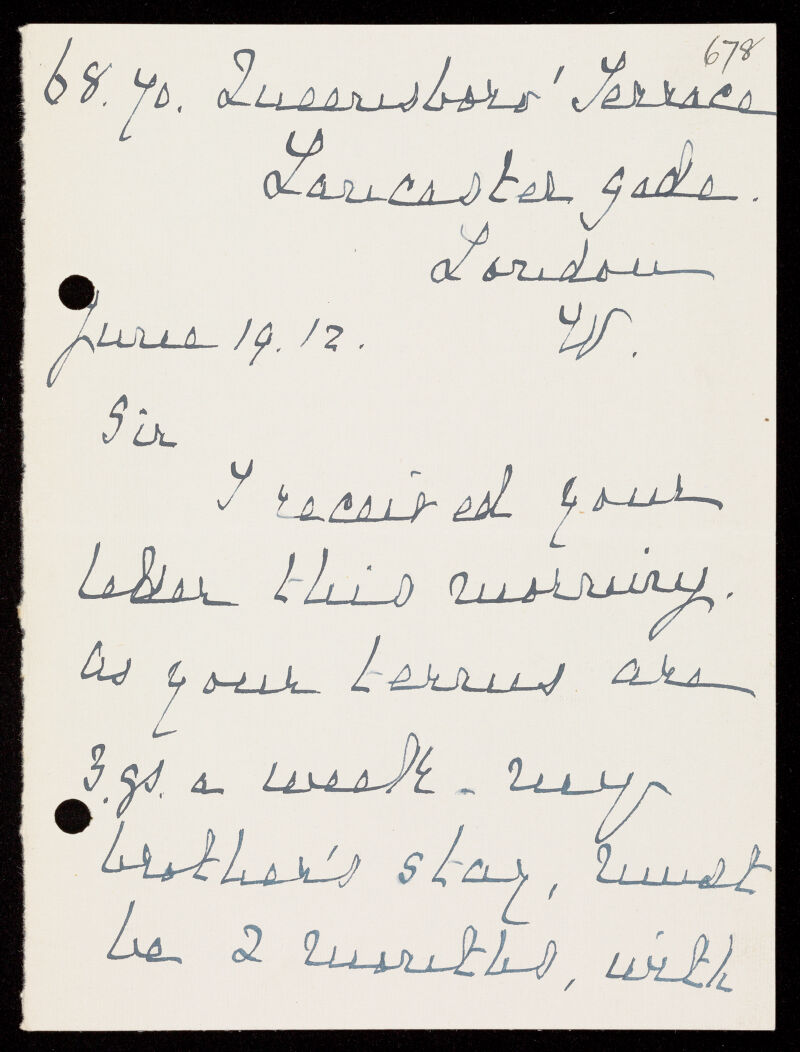 678
68.70. Queensboro' Terrace
Lancaster gate.
London
W.
June 19. 12.
Sir
I received your
letter this morning.
As your terms are
3.gs. a week - my
brother's stay, must
be 2 months, with